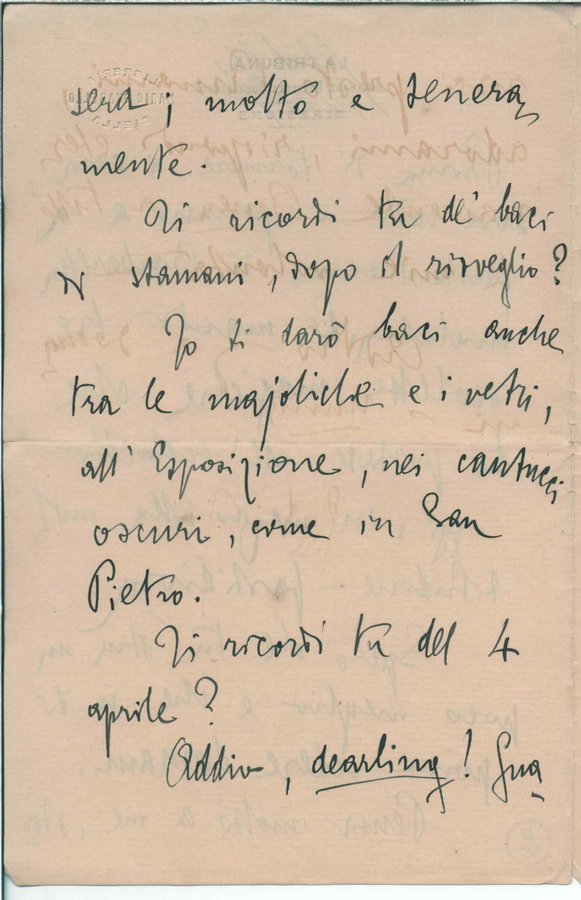 sera; molto e tenera
mente.
Ti ricordi tu de' baci
di stamani, dopo il risveglio?
Io ti darò baci anche
tra le majoliche e i vetri,
all'Esposizione, nei cantucci
oscuri, come in San
Pietro.
Ti ricordi tu del 4
aprile?
Addio, dearling! Gua